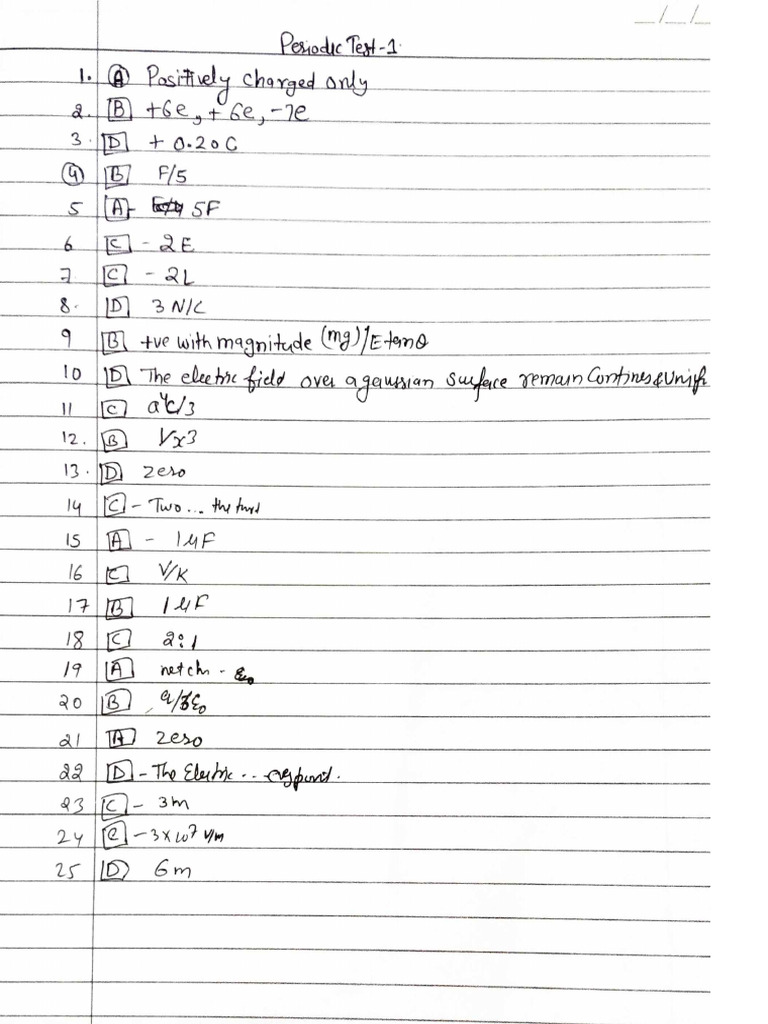 __/__/__
Periodic Test-1.
1. A Positively charged only
2. B +6e, +6e, -7e
3. D + 0.20C
4 B F/5
5 A- 5F
6 C - 2E
7. C - 2L
8. D 3 N/C
9 B +ve with magnitude (mg)/E tanθ
10 D The electric field over a gaussian surface remain Contines & Unif
11 C a⁴c/3
12. B V x 3
13. D zero
14 C - Two ... the
15 A - 1μF
16 C V/K
17 B 1μF
18 C 2:1
19 A net ch - ε₀
20 B q/ ε₀
21 A zero
22 D - The Electric ..
23 C - 3m
24 C - 3×10⁷ V/m
25 D 6m